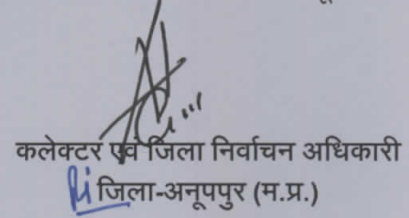 कलेक्टर एवं जिला निर्वाचन अधिकारी
जिला-अनूपपुर (म.प्र.)